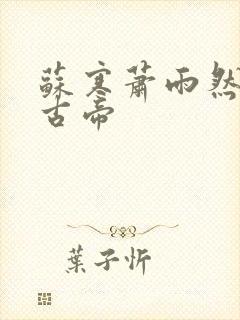 蘇寒蕭雨然
古帝
葉子忻